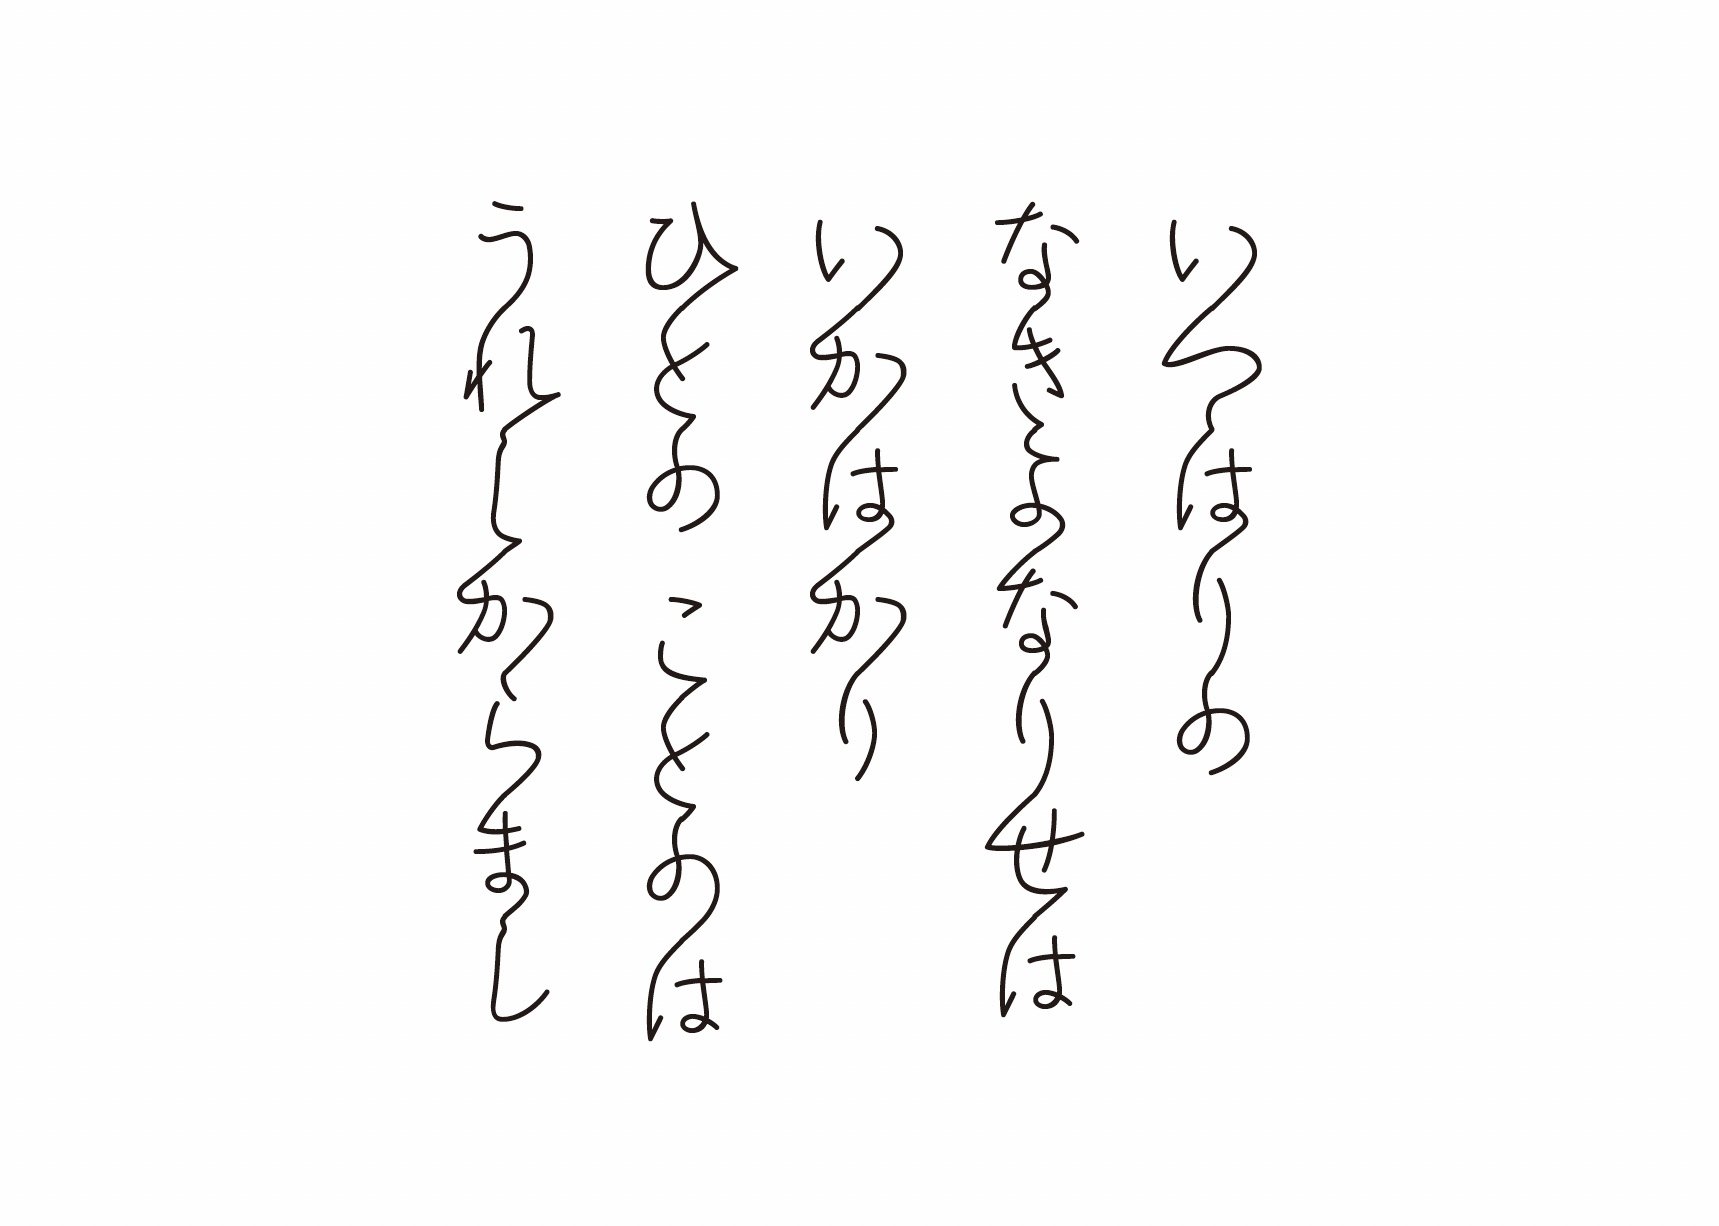 いつはりの
なきよなりせは
いかはかり
ひとの ことのは
うれしからまし